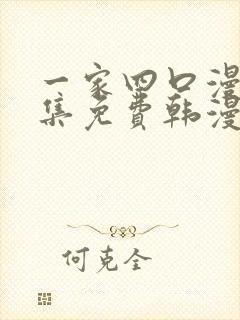 一家四口漫
集免费韩漫
何克全